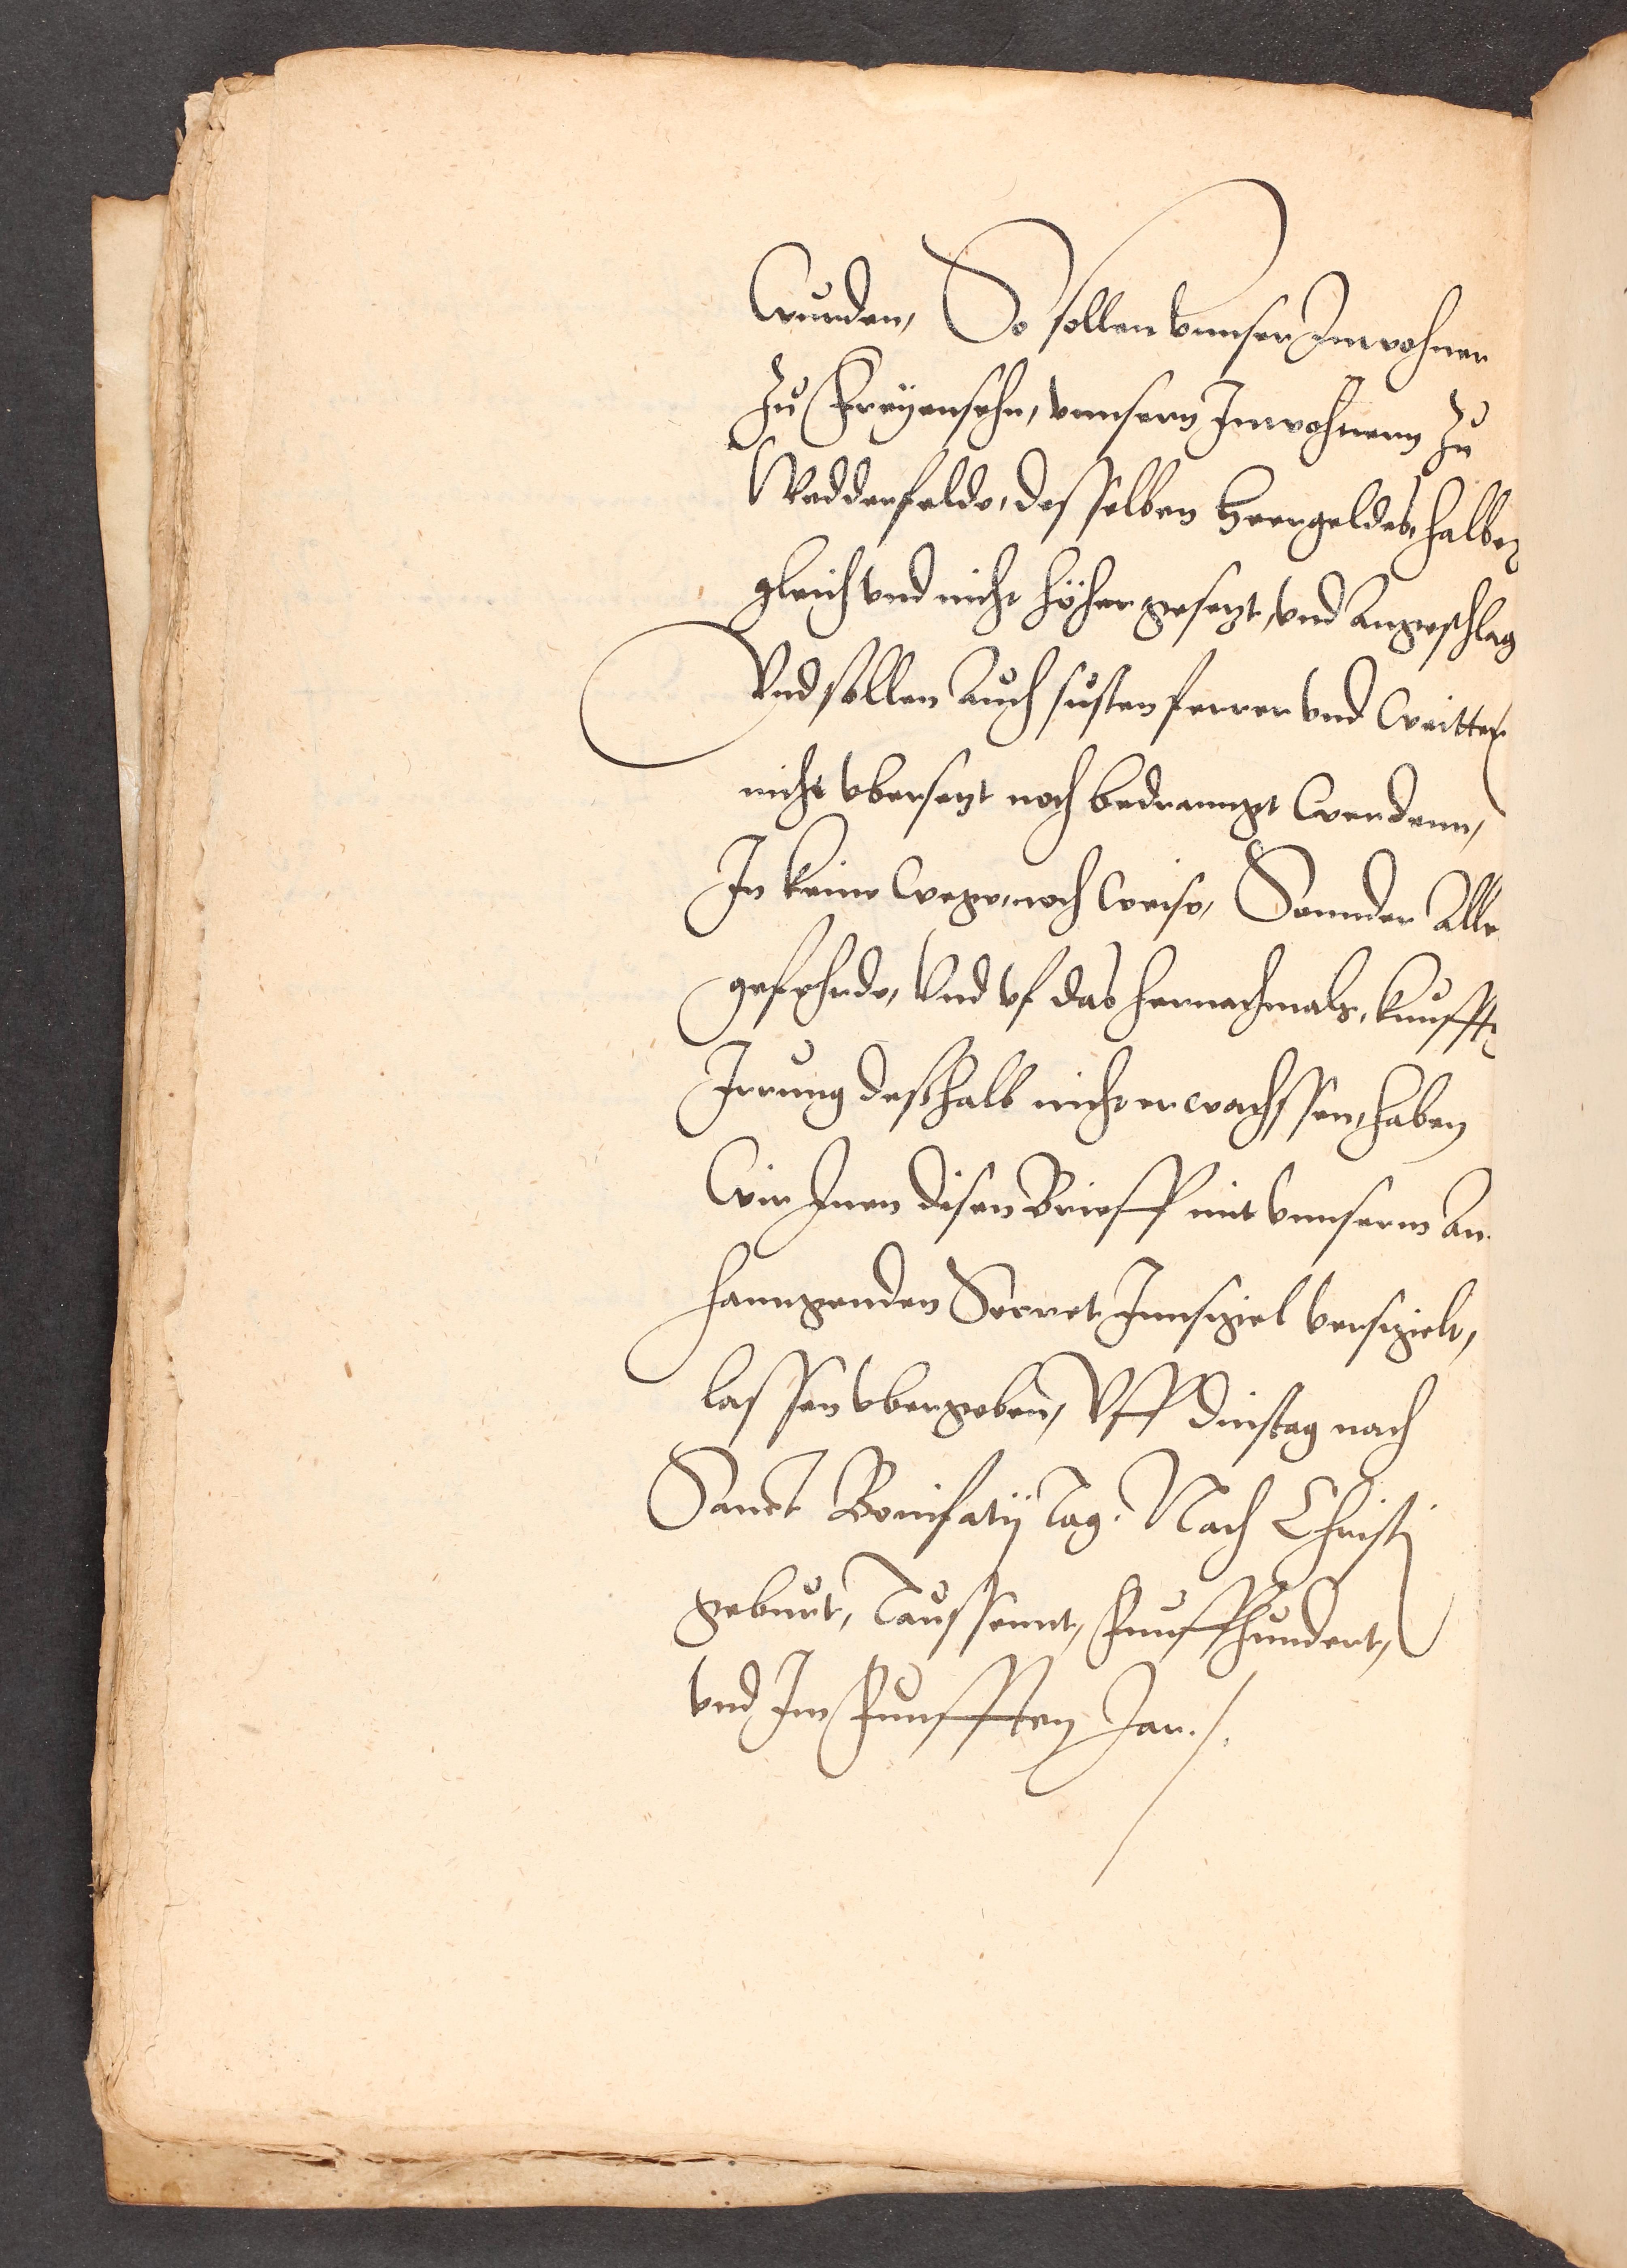 Wurden, So sollen vnnser Inwohner
Zu Freyensehn, vnnsern Inwohnern zu
Weddenfelde, desselben Heergeldes, halben
gleich vnd nicht höher gesetzt, vnd angeschlag
Vnd sollen auch susten ferrer vnd Weitter
nicht vbersetzt noch bedrannget Werdenn,
In keine Wege, noch Weise, Sonnder alle
geferhrde, Vnd vf das hernachmals, kunfftig
Irrung deßhalb nicht erwachssen, haben
Wir Inen disen Brieff mit vnnserm an
hanngenden Secret Innsigiel versigielt,
lassen vbergeben, Vff Dinstag nach
Sanct Bonifatij Tag. Nach Christi
geburt, Taussennt, Funffhundert,
vnd Im Funfften Jar./.